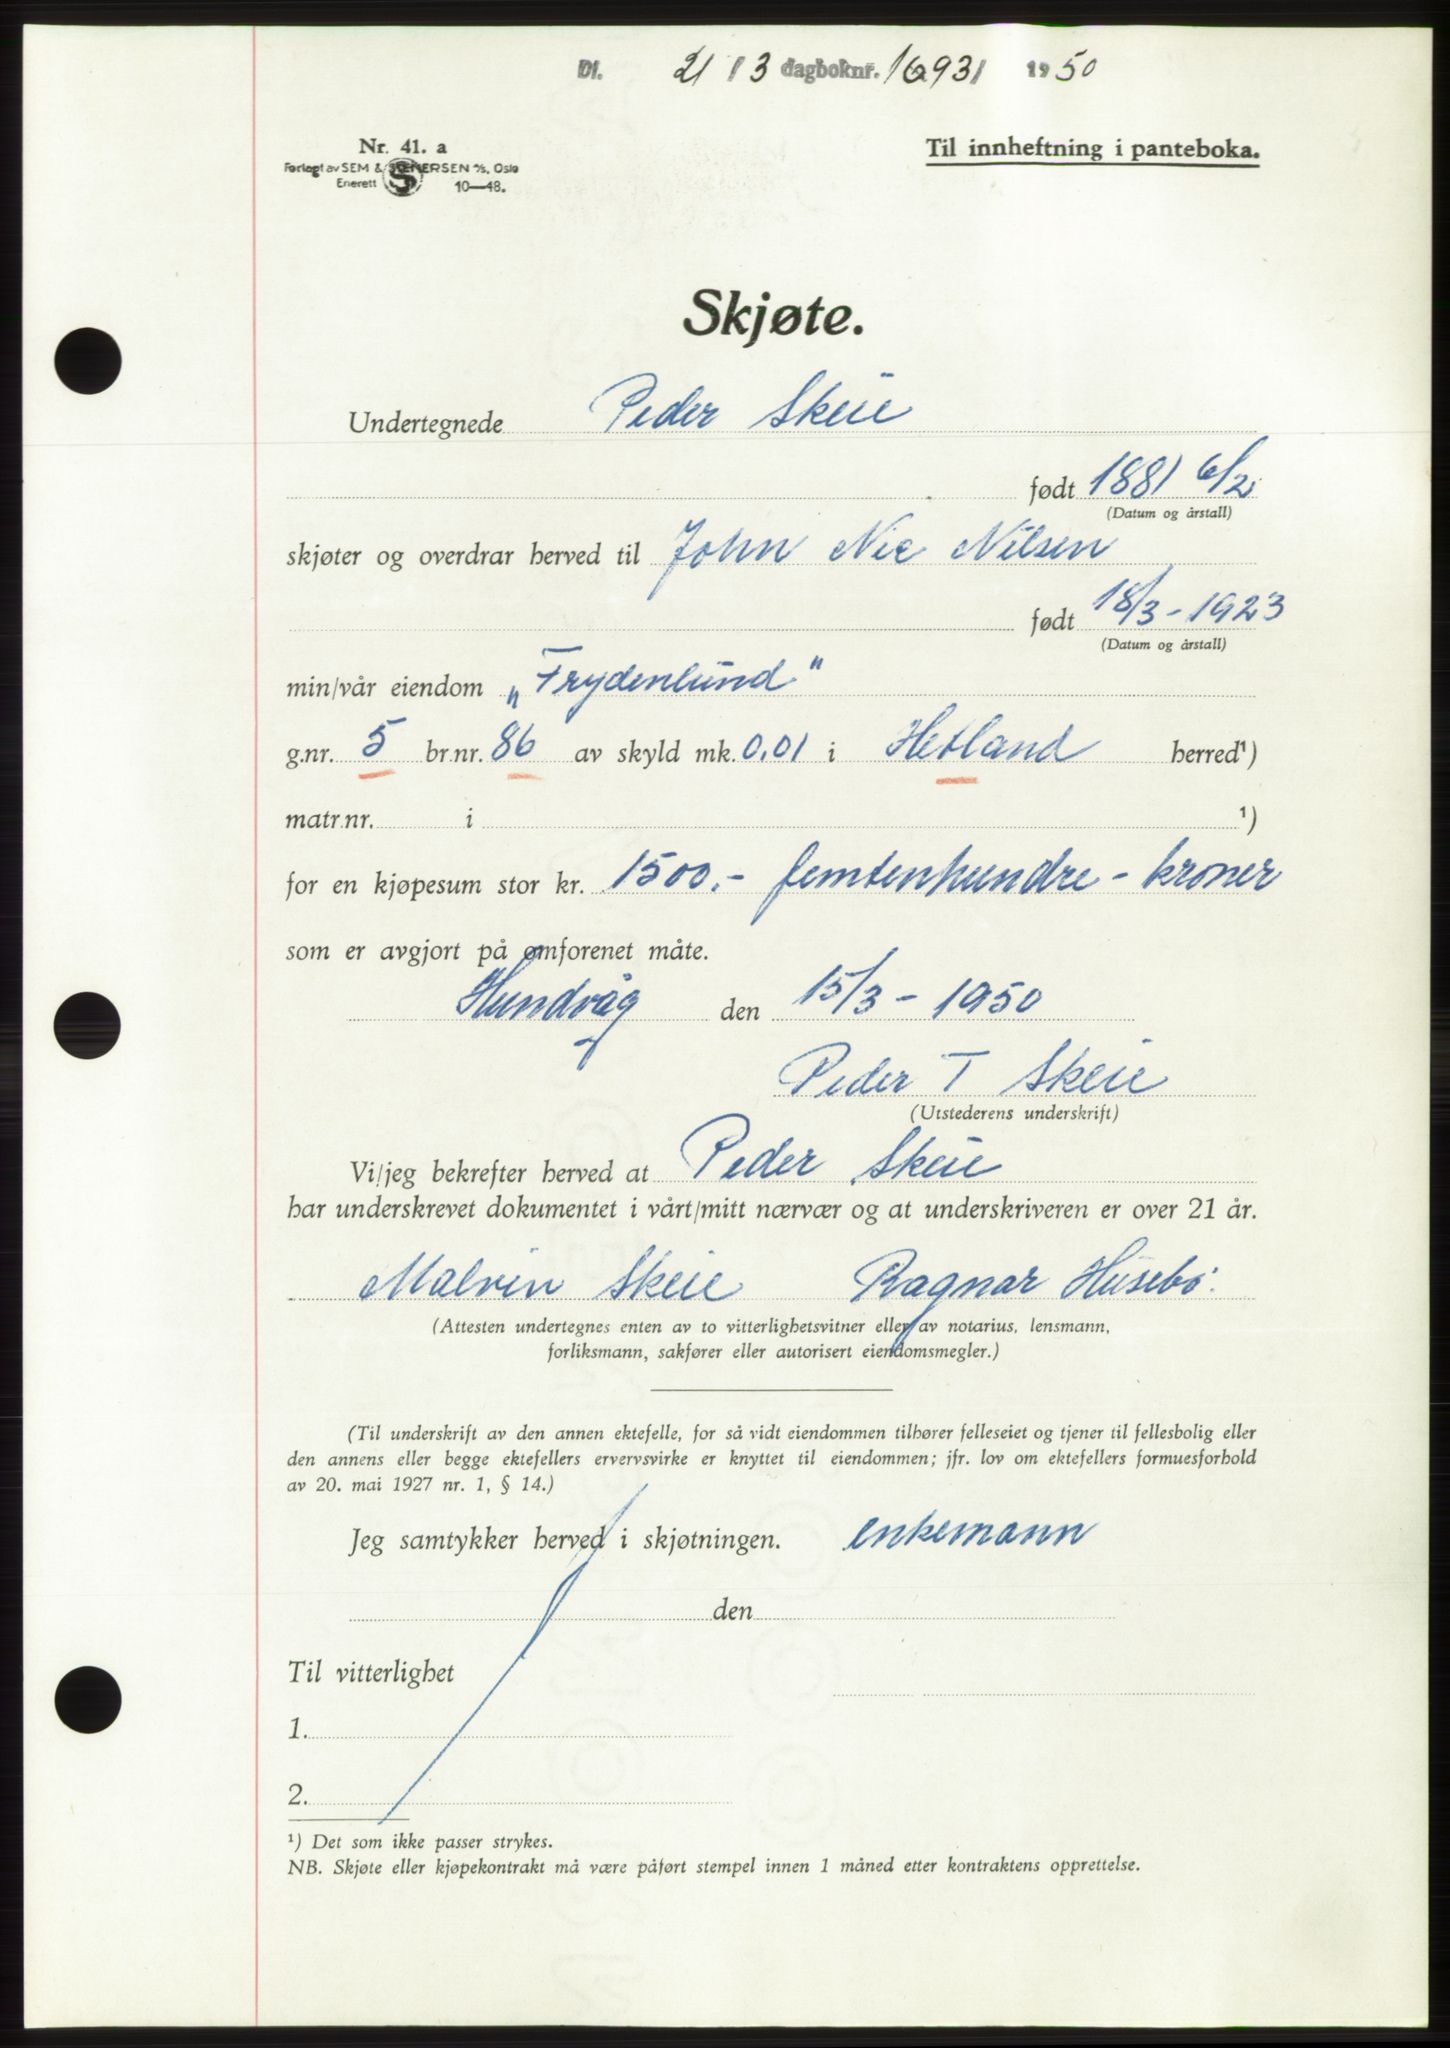 Df. 21/3 dagboknr. 1693/ 1950
Nr. 41. a
Til innheftning i panteboka.
Forlagt av SEM & STENERSEN A/S, Oslo
Enerett 10—48.
Skjøte.
Undertegnede Peder Skeie
født 1881 6/2
(Datum og årstall)
skjøter og overdrar herved til John Nic Nilsen
født 18/3 - 1923
(Datum og årstall)
min/vår eiendom „Frydenlund"
g.nr. 5 br.nr. 86 av skyld mk. 0,01 i Hetland herred¹)
matr.nr. i ¹)
for en kjøpesum stor kr. 1500.- femtenhundre - kroner
som er avgjort på omforenet måte.
Hundvåg den 15/3 - 1950
Peder T Skeie
(Utstederens underskrift)
Vi/jeg bekrefter herved at Peder Skeie
har underskrevet dokumentet i vårt/mitt nærvær og at underskriveren er over 21 år.
Malvin Skeie Ragnar Husebø.
(Attesten undertegnes enten av to vitterlighetsvitner eller av notarius, lensmann,
forliksmann, sakfører eller autorisert eiendomsmegler.)
(Til underskrift av den annen ektefelle, for så vidt eiendommen tilhører felleseiet og tjener til fellesbolig eller
den annens eller begge ektefellers ervervsvirke er knyttet til eiendommen; jfr. lov om ektefellers formuesforhold
av 20. mai 1927 nr. 1, § 14.)
Jeg samtykker herved i skjøtningen. enkemann
den
Til vitterlighet
1.
2.
¹) Det som ikke passer strykes.
NB. Skjøte eller kjøpekontrakt må være påført stempel innen 1 måned etter kontraktens opprettelse.